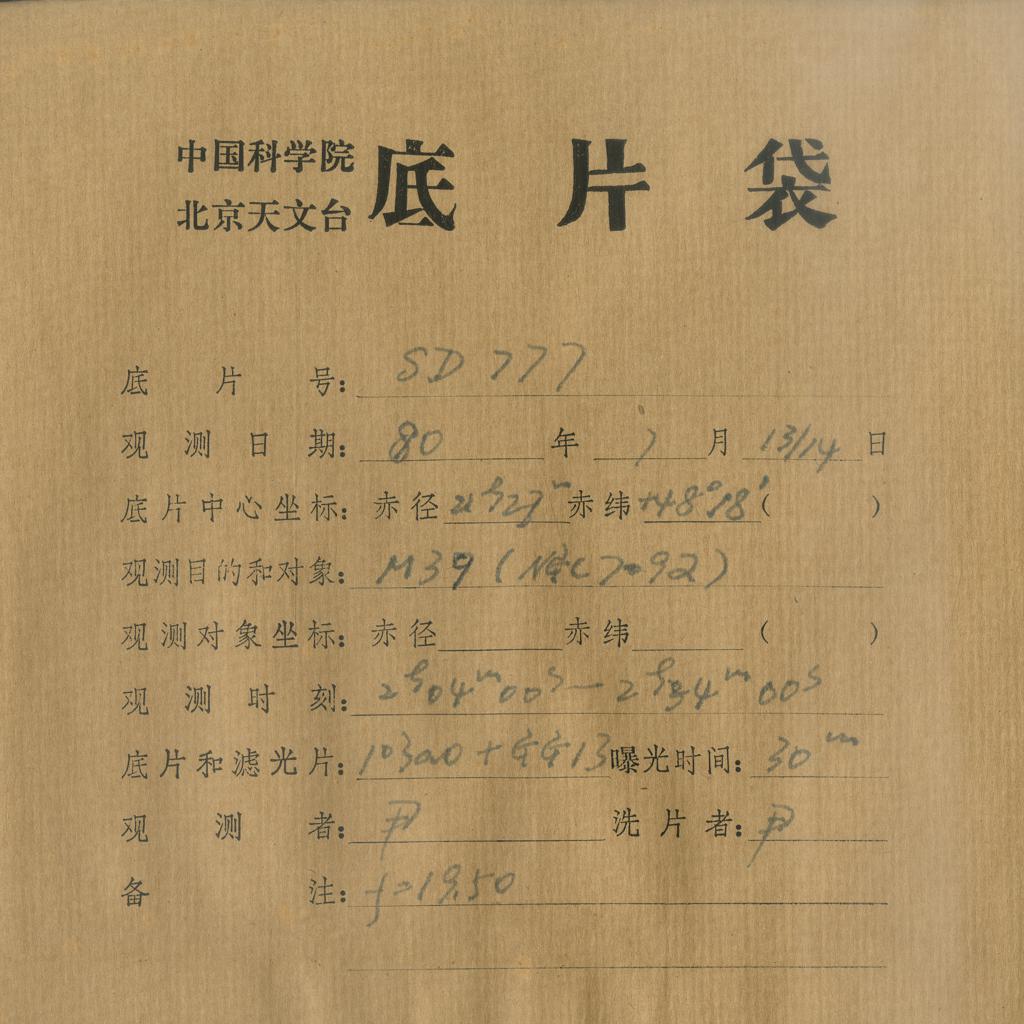 中国科学院
北京天文台
底片袋
底片号： SD 777
观测日期： 80 年 7 月 13/14 日
底片中心坐标： 赤径 21ʰ27ᵐ 赤纬 +48°18′ ( )
观测目的和对象： M39 (NGC 7092)
观测对象坐标： 赤径 赤纬 ( )
观测时刻： 2ʰ04ᵐ00ˢ — 2ʰ34ᵐ00ˢ
底片和滤光片： 103aO + GG13 曝光时间： 30ᵐ
观测者： 尹 洗片者： 尹
备注： f=19.50